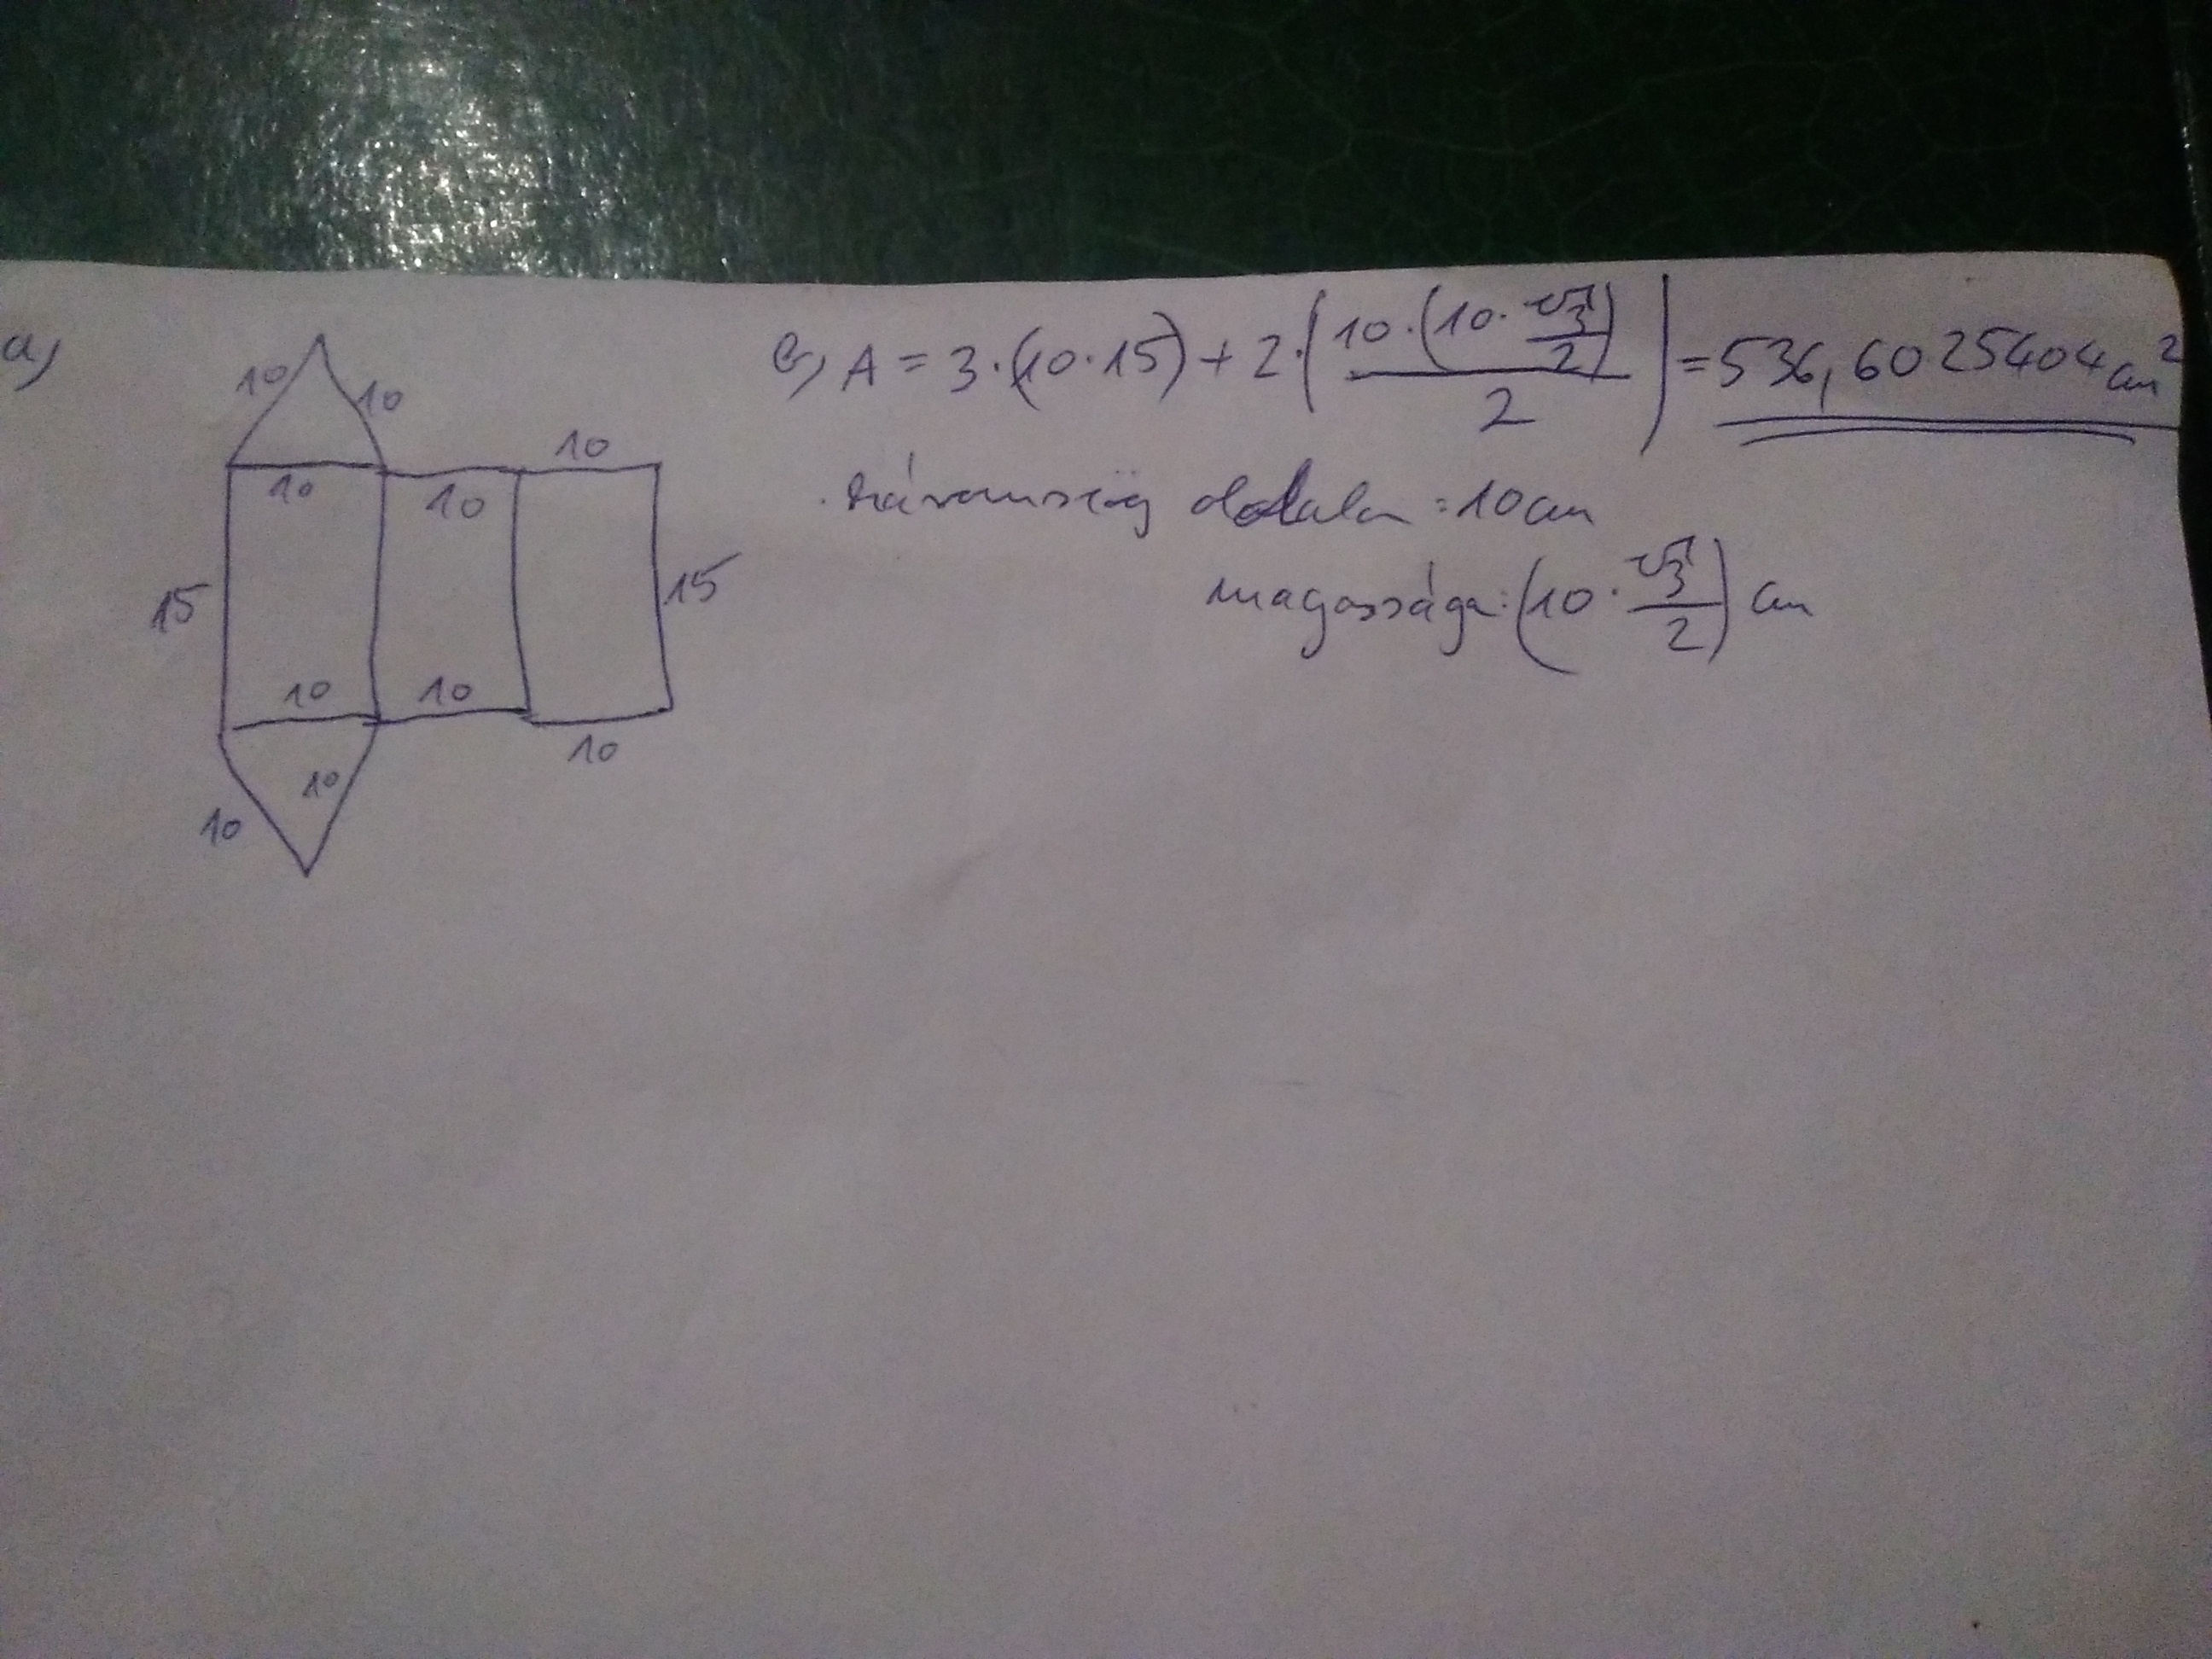 a)
10 10
10
10 10
15 15
10 10
10
10 10
b) A = 3·(10·15) + 2·(10·(10·√3/2)/2) = 536,6025404 cm²
háromszög oldala: 10 cm
magassága: (10·√3/2) cm